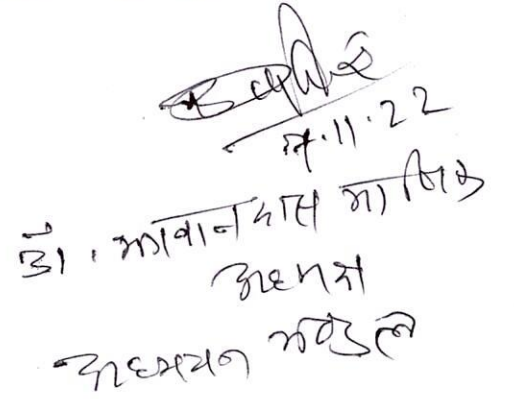 11.22
डॉ. भगवानदास माणिक
अध्यक्ष
अध्ययन मण्डल